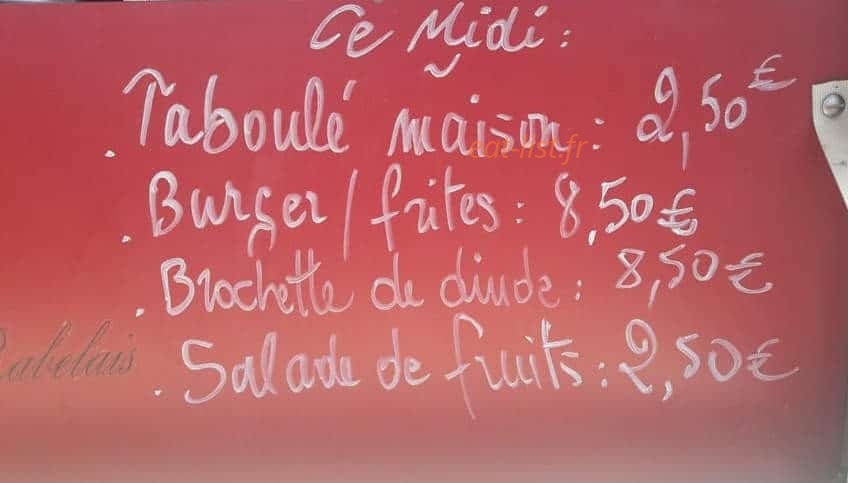 Ce Midi :
. Taboulé maison : 2,50 €
eat-list.fr
. Burger / frites : 8,50 €
. Brochette de dinde : 8,50 €
. Salade de fruits : 2,50 €
Rabelais